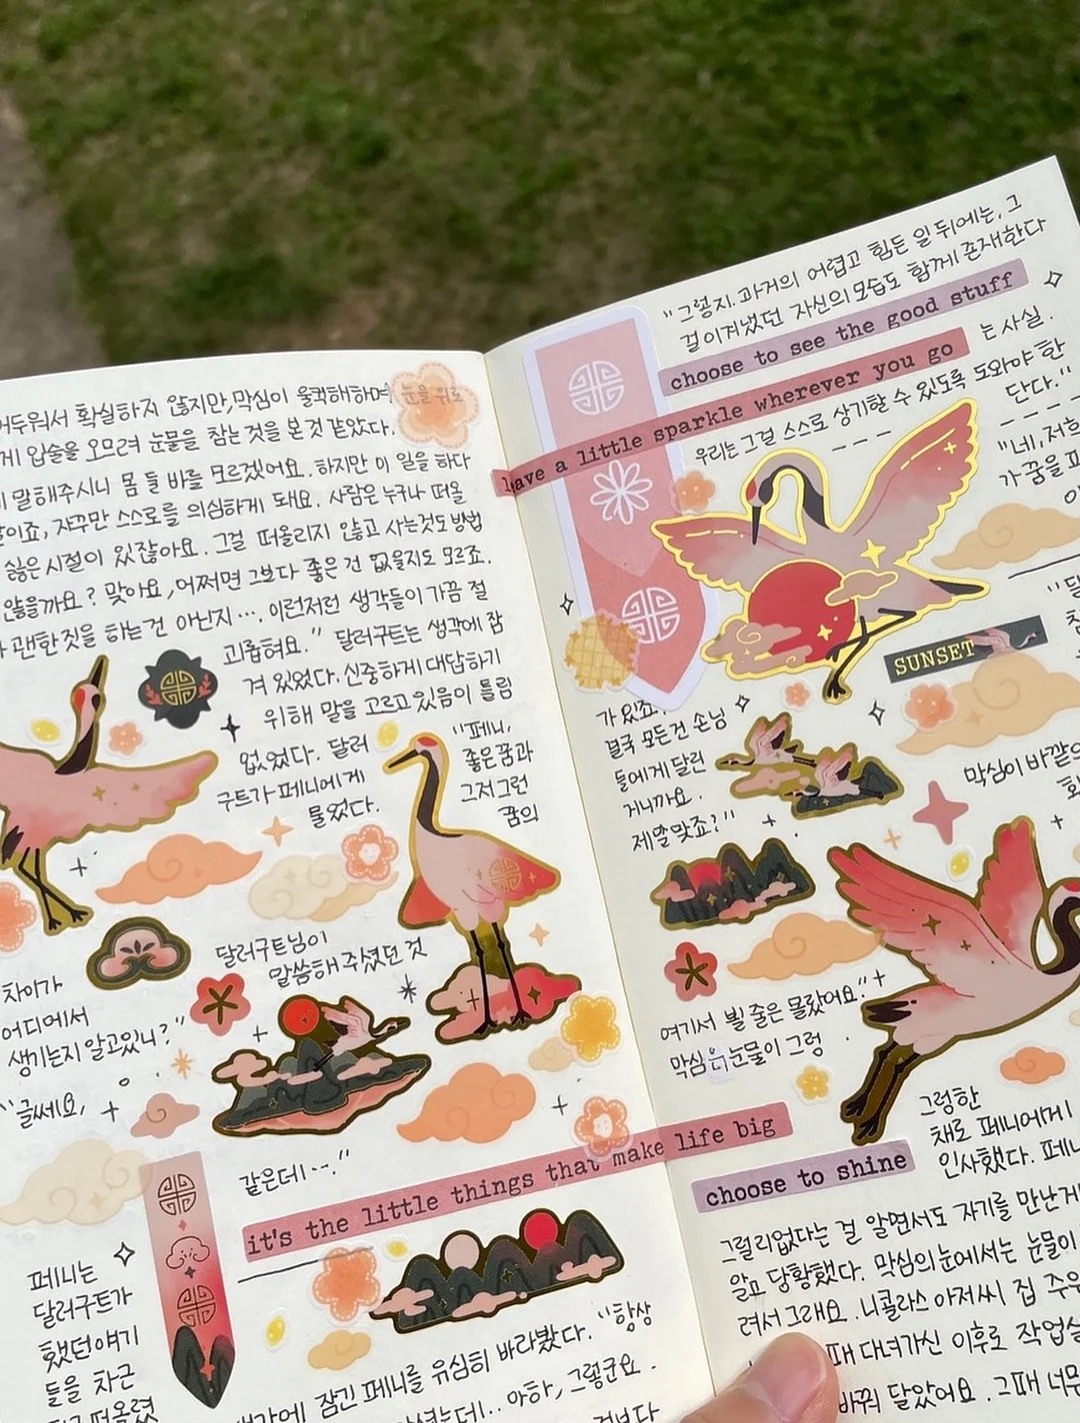 어두워서 확실하지 않지만, 막심이 울컥해하며 눈을 위로
게 입술을 오므려 눈물을 참는 것을 본 것 같았다.
말해주시니 몸 둘 바를 모르겠어요. 하지만 이 일을 하다
이죠, 자꾸만 스스로를 의심하게 돼요. 사람은 누구나 떠올
싫은 시절이 있잖아요. 그걸 떠올리지 않고 사는것도 방법
않을까요? 맞아요, 어쩌면 그보다 좋은 건 없을지도 모르죠.
괜한짓을 하는건 아닌지…. 이런저런 생각들이 가끔 절
괴롭혀요." 달러구트는 생각에 잠
겨 있었다. 신중하게 대답하기
위해 말을 고르고 있음이 틀림
없었다. 달러
구트가 페니에게
물었다.
"페니,
좋은꿈과
그저 그런
꿈의
차이가
어디에서
생기는지 알고있니?"
"글쎄요,
달러구트님이
말씀해 주셨던 것
같은데…."
it's the little things that make life big
페니는
달러구트가
했던얘기
들을 차근
떠올렸
잠긴 페니를 유심히 바라봤다. "항상
아하, 그렇군요.
"그렇지. 과거의 어렵고 힘든 일 뒤에는, 그
걸 이겨냈던 자신의 모습도 함께 존재한다
choose to see the good stuff
는 사실.
leave a little sparkle wherever you go
우리는 그걸 스스로 상기할 수 있도록 도와야 한
단다."
"네, 저희
가 꿈을 파
SUNSET
가 있죠.
결국 모든건 손님
들에게 달린
거니까요.
제 말 맞죠?"
막심이 바깥으
여기서 뵐 줄은 몰랐어요."
막심은 눈물이 그렁
그렁한
채로 페니에게
인사했다. 페니
choose to shine
그럴리없다는 걸 알면서도 자기를 만난게
알고 당황했다. 막심의 눈에서는 눈물이
려서 그래요. 니콜라스 아저씨 집 주위
때 다녀가신 이후로 작업실
바꿔 달았어요. 그때 너무